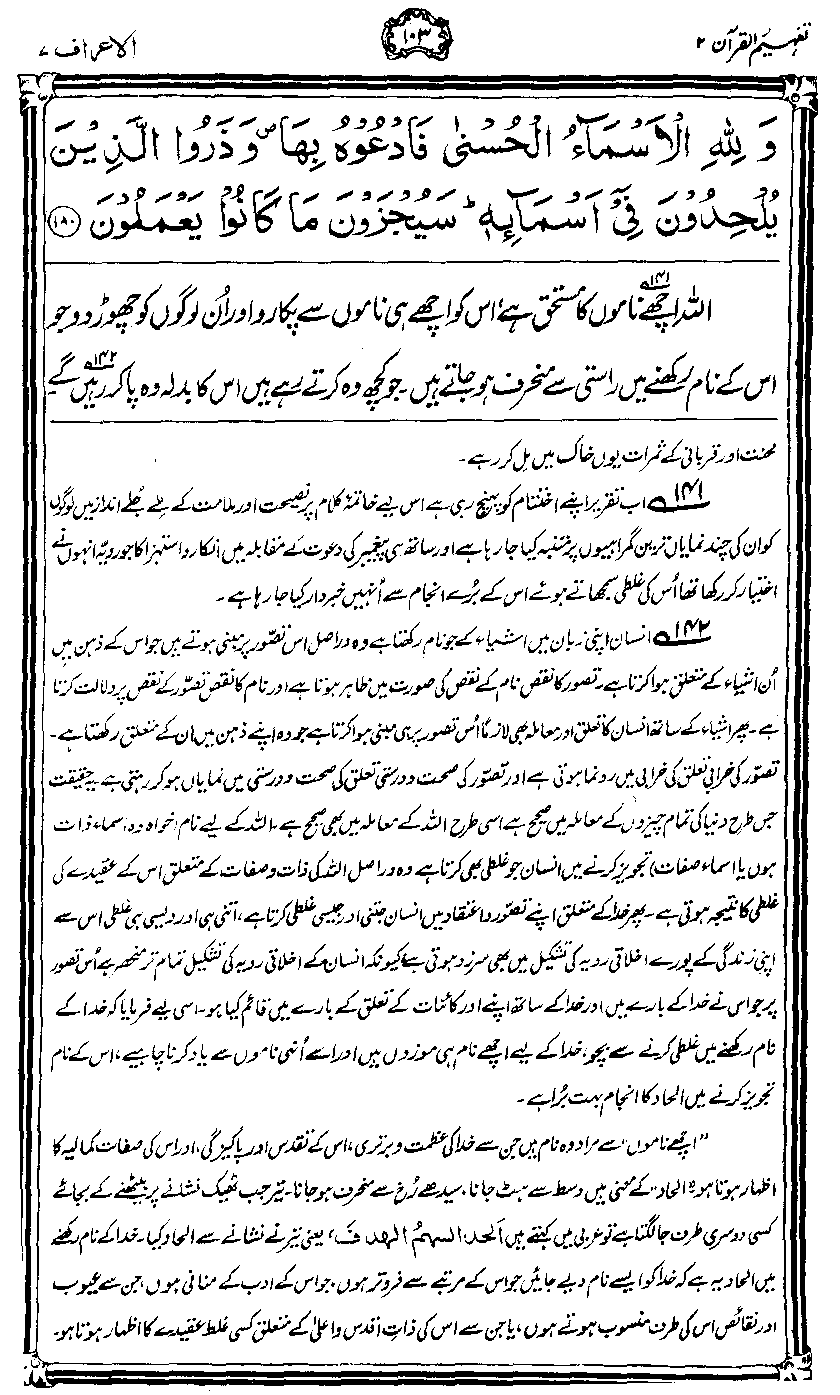 تفہیم القرآن ۲
۱۰۳
الاعراف ۷
وَلِلّٰهِ الْاَسْمَآءُ الْحُسْنٰى فَادْعُوْهُ بِهَا ۖ وَذَرُوا الَّذِيْنَ
يُلْحِدُوْنَ فِيْٓ اَسْمَآىِٕهٖ ؕ سَيُجْزَوْنَ مَا كَانُوْا يَعْمَلُوْنَ ﴿۱۸۰﴾
اللہ اچھے ۱۴۱ ناموں کا مستحق ہے، اس کو اچھے ہی ناموں سے پکارو اور اُن لوگوں کو چھوڑ دو جو
اس کے نام رکھنے میں راستی سے منحرف ہو جاتے ہیں۔ جو کچھ وہ کرتے رہے ہیں اس کا بدلہ وہ پا کر رہیں ۱۴۲ گے
محنت اور قربانی کے ثمرات یوں خاک میں مل کر رہے۔
۱۴۱ اب تقریر اپنے اختتام کو پہنچ رہی ہے اس لیے خاتمۂ کلام پر نصیحت اور ملامت کے ملے جُلے انداز میں لوگوں
کو ان کی چند نمایاں ترین گمراہیوں پر متنبہ کیا جا رہا ہے اور ساتھ ہی پیغمبر کی دعوت کے مقابلہ میں انکار و استہزا کا جو رویّہ انہوں نے
اختیار کر رکھا تھا اُس کی غلطی سمجھاتے ہوئے اس کے بُرے انجام سے اُنہیں خبردار کیا جا رہا ہے۔
۱۴۲ انسان اپنی زبان میں اشیاء کے جو نام رکھتا ہے وہ دراصل اس تصوّر پر مبنی ہوتے ہیں جو اس کے ذہن میں
اُن اشیاء کے متعلق ہوا کرتا ہے۔ تصور کا نقص نام کے نقص کی صورت میں ظاہر ہوتا ہے اور نام کا نقص تصوّر کے نقص پر دلالت کرتا
ہے۔ پھر اشیاء کے ساتھ انسان کا تعلق اور معاملہ بھی لازمًا اُس تصور پر ہی مبنی ہوا کرتا ہے جو وہ اپنے ذہن میں ان کے متعلق رکھتا ہے۔
تصوّر کی خرابی تعلق کی خرابی میں رونما ہوتی ہے اور تصوّر کی صحت و درستی تعلق کی صحت و درستی میں نمایاں ہو کر رہتی ہے۔ یہ حقیقت
جس طرح دنیا کی تمام چیزوں کے معاملہ میں صحیح ہے اسی طرح اللہ کے معاملہ میں بھی صحیح ہے۔ اللہ کے لیے نام (خواہ وہ اسماء ذات
ہوں یا اسماء صفات) تجویز کرنے میں انسان جو غلطی بھی کرتا ہے وہ دراصل اللہ کی ذات و صفات کے متعلق اس کے عقیدے کی
غلطی کا نتیجہ ہوتی ہے۔ پھر خدا کے متعلق اپنے تصوّر و اعتقاد میں انسان جتنی اور جیسی غلطی کرتا ہے، اتنی ہی اور ویسی ہی غلطی اس سے
اپنی زندگی کے پورے اخلاقی رویہ کی تشکیل میں بھی سرزد ہوتی ہے کیونکہ انسان کے اخلاقی رویہ کی تشکیل تمام تر منحصر ہے اُس تصور
پر جو اس نے خدا کے بارے میں اور خدا کے ساتھ اپنے اور کائنات کے تعلق کے بارے میں قائم کیا ہو۔ اسی لیے فرمایا کہ خدا کے
نام رکھنے میں غلطی کرنے سے بچو، خدا کے لیے اچھے نام ہی موزوں ہیں اور اسے اُنہی ناموں سے یاد کرنا چاہیے، اس کے نام
تجویز کرنے میں الحاد کا انجام بہت بُرا ہے۔
”اچھے ناموں“ سے مراد وہ نام ہیں جن سے خدا کی عظمت و برتری، اس کے تقدس اور پاکیزگی، اور اس کی صفات کمالیہ کا
اظہار ہوتا ہو۔ ”الحاد“ کے معنی ہیں وسط سے ہٹ جانا، سیدھے رُخ سے منحرف ہو جانا۔ تیر جب ٹھیک نشانے پر بیٹھنے کے بجائے
کسی دوسری طرف جا لگتا ہے تو عربی میں کہتے ہیں الحد السهم الهدف، یعنی تیر نے نشانے سے الحاد کیا۔ خدا کے نام رکھنے
میں الحاد یہ ہے کہ خدا کو ایسے نام دیے جائیں جو اس کے مرتبے سے فروتر ہوں، جو اس کے ادب کے منافی ہوں، جن سے عیوب
اور نقائص اس کی طرف منسوب ہوتے ہوں، یا جن سے اس کی ذاتِ اقدس و اعلیٰ کے متعلق کسی غلط عقیدے کا اظہار ہوتا ہو۔